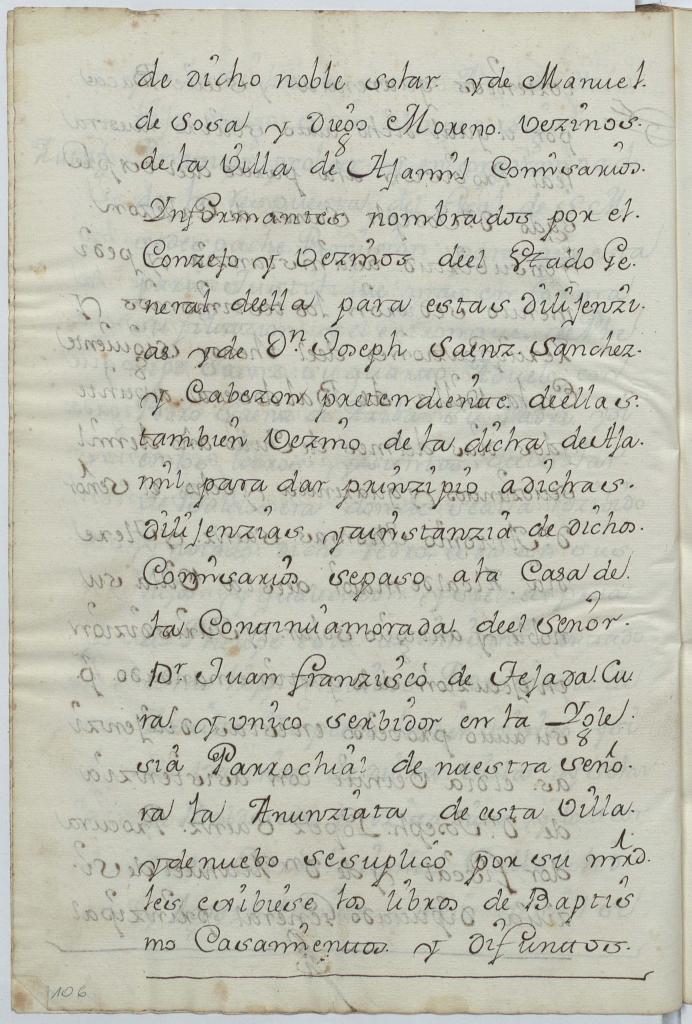 de dicho noble solar yde Manuel.
de Sosa y Diego Moreno Vezinos.
de la Villa de Ajamil Comisarios.
Ynformantes nombrados por el.
Conzejo y Vezinos deel Estado Ge.
neral deella para estas Dilijenzi.
as yde Dn. Joseph Saenz. Sanchez.
y Cabezon pretendiente deellas.
tambien Vezino de la dicha de Aja.
mil para dar prinzipio adichas.
dilijenzias yainstanzia de dichos.
Comisarios sepaso ala Casa de.
la Continuamorada deel Señor.
Dr. Juan franzisco de Tejada Cu.
ra y unico serbidor en la Ygle.
sia Parrochial de nuestra Seño.
ra la Anunziata de esta Villa.
ydenuebo sesuplico por su mrd.
leis exibiese los libros de Baptis
mo Casamientos y Difuntos.
106